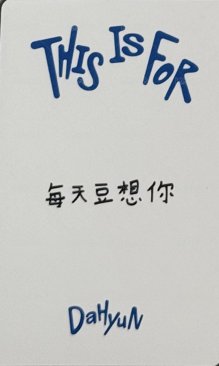 THIS IS FOR
每天豆想你
DAHYUN